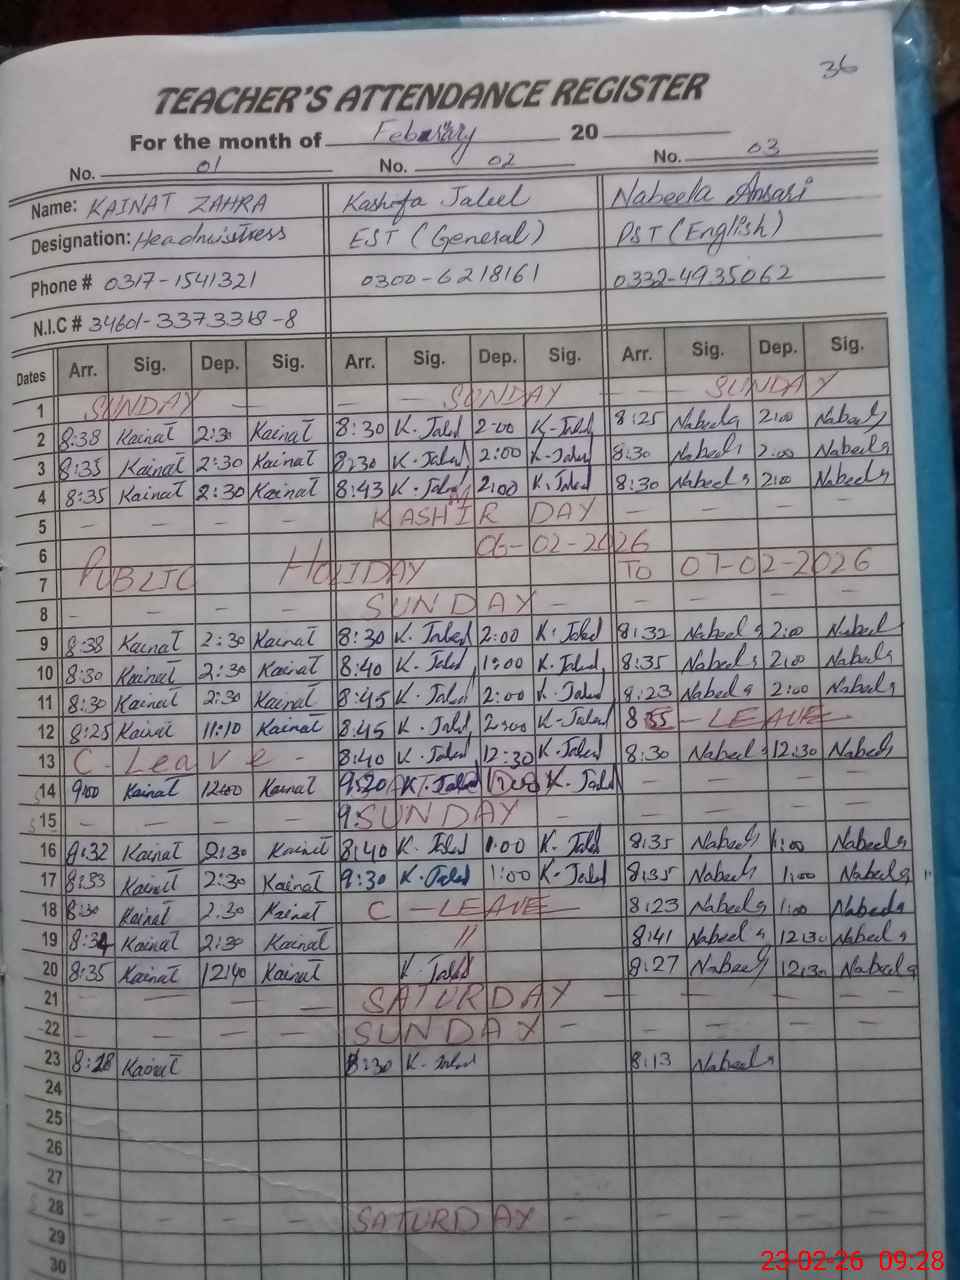 36
TEACHER'S ATTENDANCE REGISTER
For the month of February 20
No. 01 No. 02 No. 03
Name: KAINAT ZAHRA Kashifa Jaleel Nabeela Ansari
Designation: Headmisstress EST (General) PST (English)
Phone # 0317-1541321 0300-6218161 0332-4935062
N.I.C # 34601-3373318-8
Dates Arr. Sig. Dep. Sig. Arr. Sig. Dep. Sig. Arr. Sig. Dep. Sig.
1 SUNDAY — — SUNDAY — — SUNDAY
2 8:38 Kainat 2:30 Kainat 8:30 K. Jaleel 2:00 K. Jaleel 8:25 Nabeela 2:00 Nabeela
3 8:35 Kainat 2:30 Kainat 8:30 K. Jaleel 2:00 K. Jaleel 8:30 Nabeela 2:00 Nabeela
4 8:35 Kainat 2:30 Kainat 8:43 K. Jaleel 2:00 K. Jaleel 8:30 Nabeela 2:00 Nabeela
5 — — — — KASHMIR DAY — — — —
6 06-02-2026
7 PUBLIC HOLIDAY TO 07-02-2026
8 — — — — SUNDAY — — — — —
9 8:38 Kainat 2:30 Kainat 8:30 K. Jaleel 2:00 K. Jaleel 8:32 Nabeela 2:00 Nabeela
10 8:30 Kainat 2:30 Kainat 8:40 K. Jaleel 1:00 K. Jaleel 8:35 Nabeela 2:00 Nabeela
11 8:30 Kainat 2:30 Kainat 8:45 K. Jaleel 2:00 K. Jaleel 8:23 Nabeela 2:00 Nabeela
12 8:25 Kainat 11:10 Kainat 8:45 K. Jaleel 2:00 K. Jaleel 8 — LEAVE
13 C - Leave - 8:40 K. Jaleel 12:30 K. Jaleel 8:30 Nabeela 12:30 Nabeela
14 9:00 Kainat 12:00 Kainat 9:30 K. Jaleel K. Jaleel — — — —
15 — — — — 9: SUNDAY — — — — —
16 8:32 Kainat 2:30 Kainat 8:40 K. Jaleel 1:00 K. Jaleel 8:35 Nabeela 1:00 Nabeela
17 8:33 Kainat 2:30 Kainat 9:30 K. Jaleel 1:00 K. Jaleel 8:35 Nabeela 1:00 Nabeela
18 8:30 Kainat 2:30 Kainat C - LEAVE 8:23 Nabeela 1:00 Nabeela
19 8:34 Kainat 2:30 Kainat // 8:41 Nabeela 12:30 Nabeela
20 8:35 Kainat 12:40 Kainat K. Jaleel 8:27 Nabeela 12:30 Nabeela
21 — — — — SATURDAY — — — — —
22 — — — — SUNDAY — — — — —
23 8:28 Kainat 8:30 K. Jaleel 8:13 Nabeela
24
25
26
27
28 — — — — SATURDAY — — — — —
29
30
23-02-26 09:28